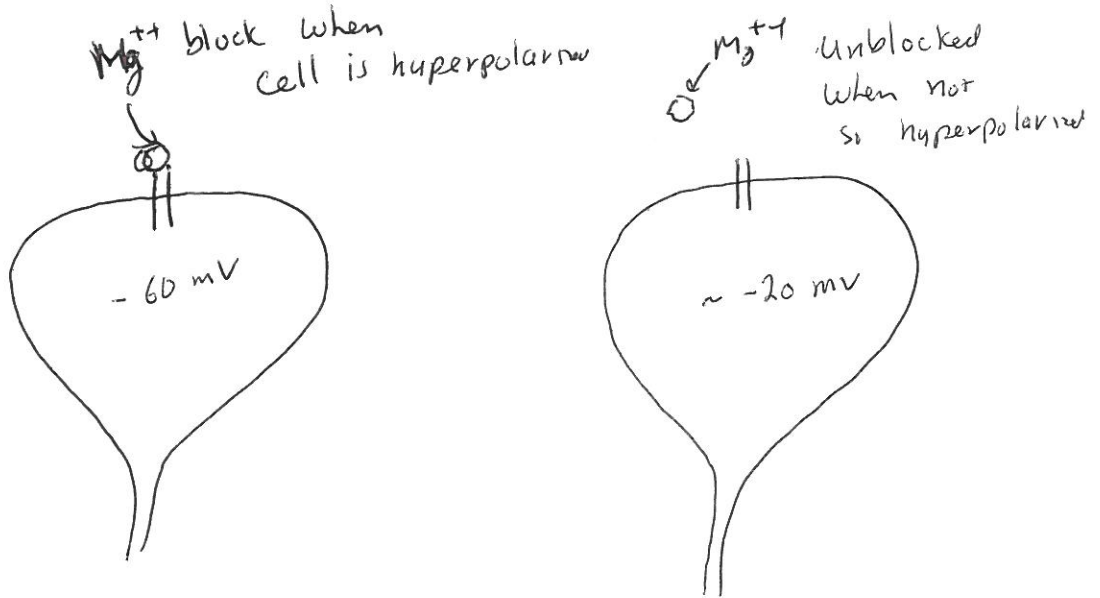 Mg++ block when
cell is huperpolarized
- 60 mV
Mg++ Unblocked
when not
so hyperpolarized
~ -20 mV